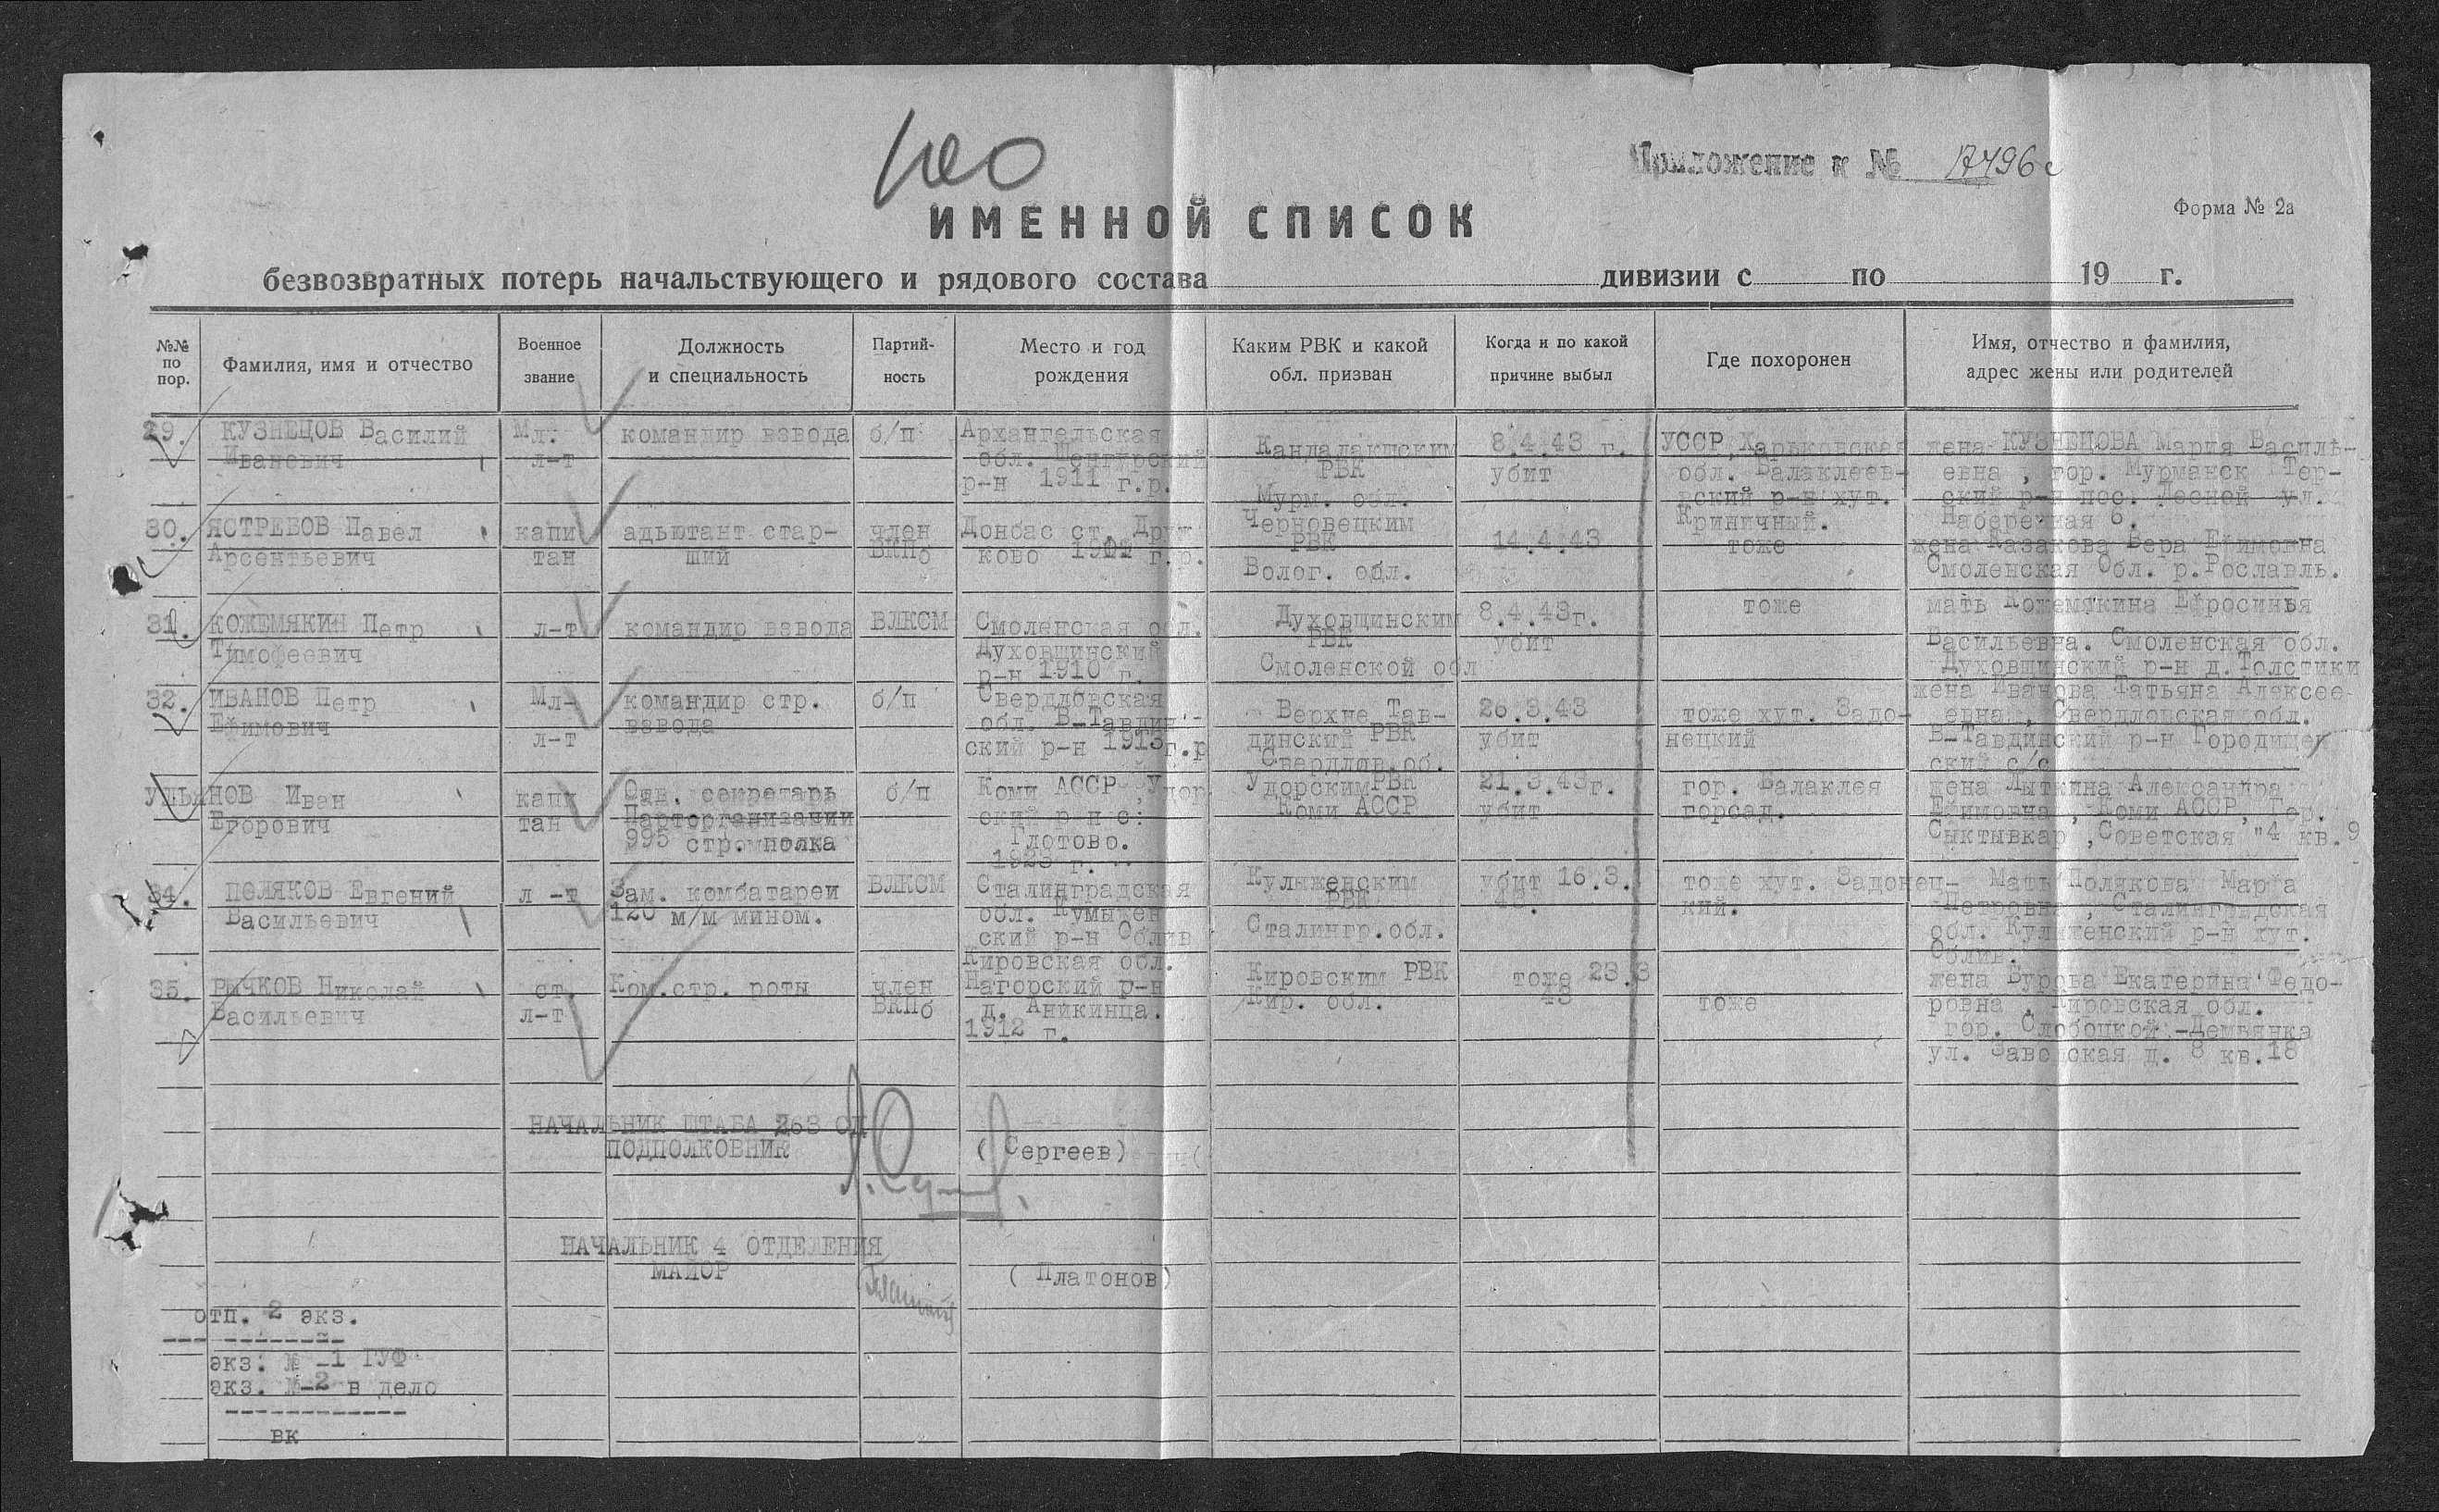 Приложение к № 17496с
ИМЕННОЙ СПИСОК
Форма № 2а
безвозвратных потерь начальствующего и рядового состава дивизии с по 19 г.
№№ по пор.
Фамилия, имя и отчество
Военное звание
Должность и специальность
Партий-ность
Место и год рождения
Каким РВК и какой обл. призван
Когда и по какой причине выбыл
Где похоронен
Имя, отчество и фамилия, адрес жены или родителей
29. КУЗНЕЦОВ Василий
Иванович
Мл.
л-т
командир взвода
б/п
Архангельская
обл. Шенгурский
р-н 1911 г.р.
Кандалакшским
РВК
Мурм. обл.
8.4.43 г.
убит
УССР, Харьковская
обл. Балаклеев-
вский р-н хут.
Криничный.
жена КУЗНЕЦОВА Мария Василь-
евна , гор. Мурманск Тер-
ский р-н пос. Лесной ул.
Набережная 6.
30. ЯСТРЕБОВ Павел
Арсентьевич
капи
тан
адьютант стар-
ший
член
ВКПб
Донбас ст. Друж
ково г.р.
Черновецким
РВК
Волог. обл.
14.4.43
тоже
жена Казакова Вера Ефимовна
Смоленская Обл. р.Рославль.
31. КОЖЕМЯКИН Петр
Тимофеевич
л-т
командир взвода
ВЛКСМ
Смоленская обл.
Духовщинский
р-н 1910 г.
Духовщинским
РВК
Смоленской обл
8.4.43г.
убит
тоже
мать Кожемякина Ефросинья
Васильевна. Смоленская обл.
Духовщинский р-н д.Толстики
32. ИВАНОВ Петр
Ефимович
Мл-
л-т
командир стр.
взвода
б/п
Свердловская
обл. В-Тавдин-
ский р-н 1913г.р
Верхне Тав-
динский РВК
Свердлов.об.
26.3.43
убит
тоже хут. Задо-
нецкий
жена Иванова Татьяна Алексее-
евна , Свердловская обл.
В-Тавдинский р-н Городищен
ский с/с
УЛЬЯНОВ Иван
Егорович
капи
тан
Отв. секретарь
Парторганизации
995 стр. полка
б/п
Коми АССР ,Удор
ский р-н с.
Глотово.
1923 г.
Удорским РВК
Коми АССР
21.3.43г.
убит
гор. Балаклея
горсад.
жена Лыткина Александра
Ефимовна , Коми АССР, Гор.
Сыктывкар ,Советская "4 кв.9
34. ПОЛЯКОВ Евгений
Васильевич
л -т
Зам. комбатареи
120 м/м мином.
ВЛКСМ
Сталинградская
обл. Кумыжен
ский р-н Облив
Кулыженским
РВК
Сталингр.обл.
убит 16.3.
43.
тоже хут. Задонец-
кий.
Мать Полякова Марфа
Петровна , Сталинградская
обл. Кулыженский р-н хут.
Облив.
35. РЫЧКОВ Николай
Васильевич
ст.
л-т
Ком.стр. роты
член
ВКПб
Кировская обл.
Нагорский р-н
д. Аникинца.
1912 г.
Кировским РВК
Кир. обл.
тоже 23.3
43
тоже
жена Бурова Екатерина Федо-
ровна , Кировская обл.
гор. Слободкой -Демьянка
ул. Заводская д. 8 кв.18
НАЧАЛЬНИК ШТАБА 263 СД
ПОДПОЛКОВНИК
( Сергеев)
НАЧАЛЬНИК 4 ОТДЕЛЕНИЯ
МАЙОР
( Платонов)
отп. 2 экз.
экз. № -1 ГУФ
экз. №-2 в дело
вк